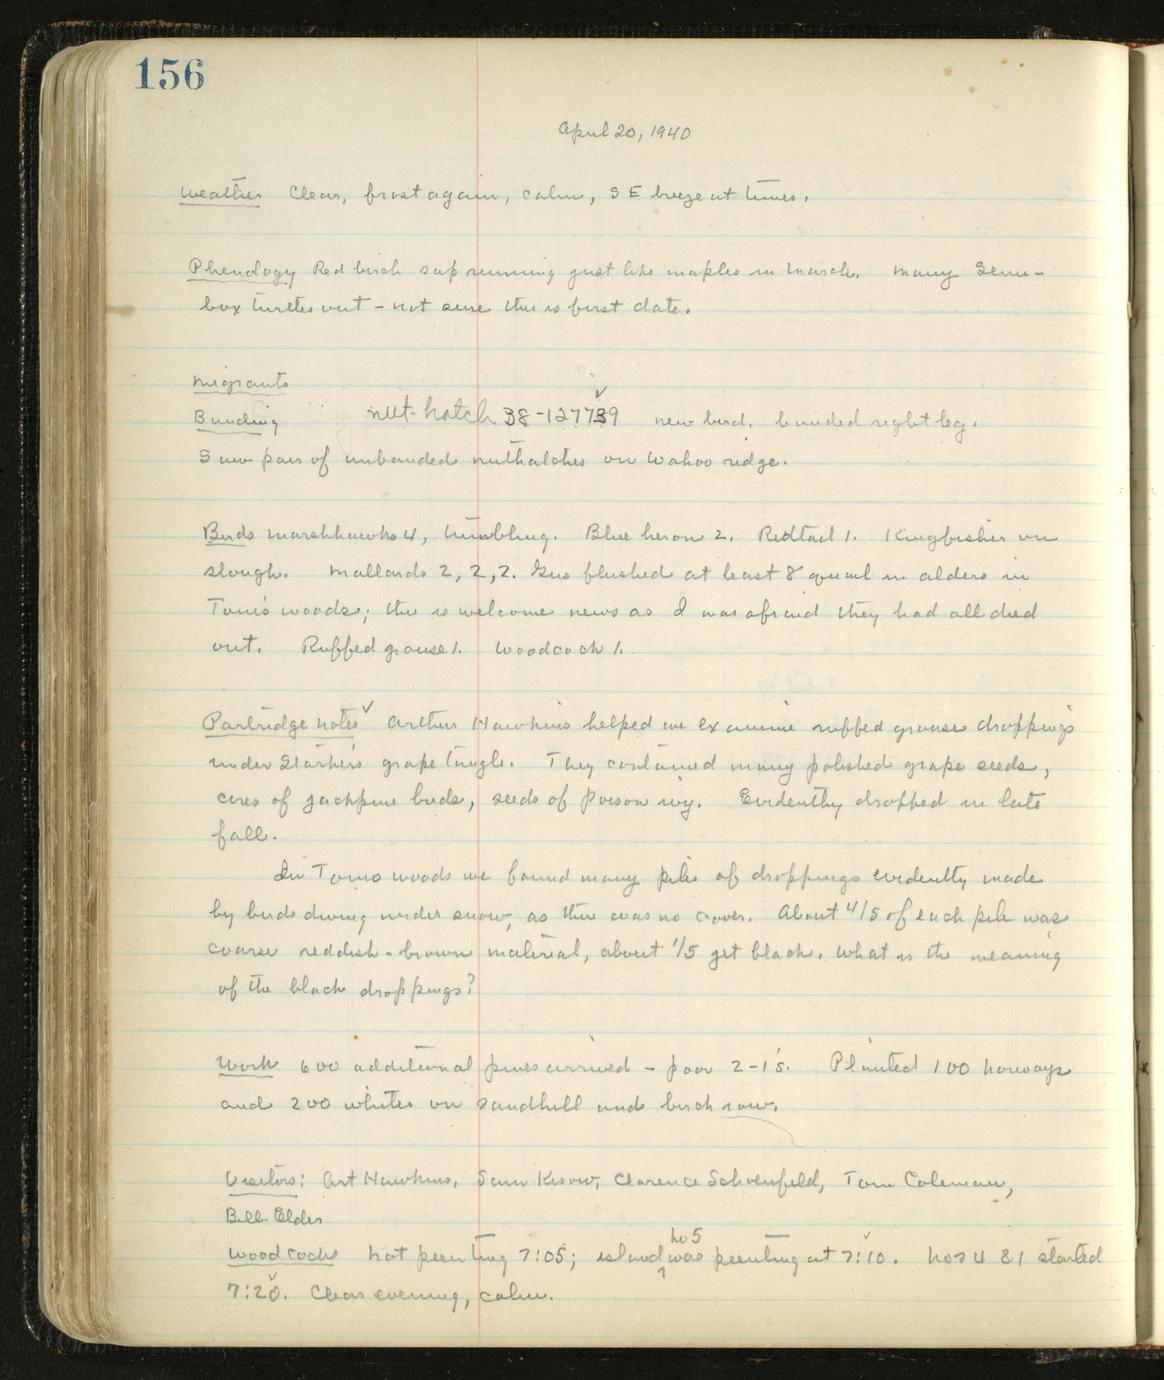 156
April 20, 1940
Weather Clear, frost again, calm, SE breeze at times.
Phenology Red birch sap running just like maples in March. Many Semi-
box turtles out - not sure this is first date.
Migrants
Banding nut-hatch 38-127739 new bird. banded right leg.
Saw pair of unbanded nuthatches on Wahoo ridge.
Birds Marshhawks 4, tumbling. Blue heron 2. Redtail 1. Kingfisher on
slough. Mallards 2, 2, 2. Gus flushed at least 8 quail in alders in
Tom's woods; this is welcome news as I was afraid they had all died
out. Ruffed grouse 1. Woodcock 1.
Partridge notes ✓ Arthur Hawkins helped me examine ruffed grouse droppings
under grape tangle. They contained many polished grape seeds,
cores of jackpine buds, seeds of poison ivy. Evidently dropped in late
fall.
In Toms woods we found many piles of droppings evidently made
by birds diving under snow, as there was no cover. About 4/5 of each pile was
coarse reddish-brown material, about 1/5 jet black. What is the meaning
of the black droppings?
Work 600 additional pines arrived - poor 2-1's. Planted 100 norways
and 200 whites on sandhill and birch row.
Visitors: Art Hawkins, Clarence Schoenfeld, Tom Coleman,
Bill Elder
Woodcock Not peenting 7:05; island no 5 was peenting at 7:10. Nos 4 & 1 started
7:20. Clear evening, calm.